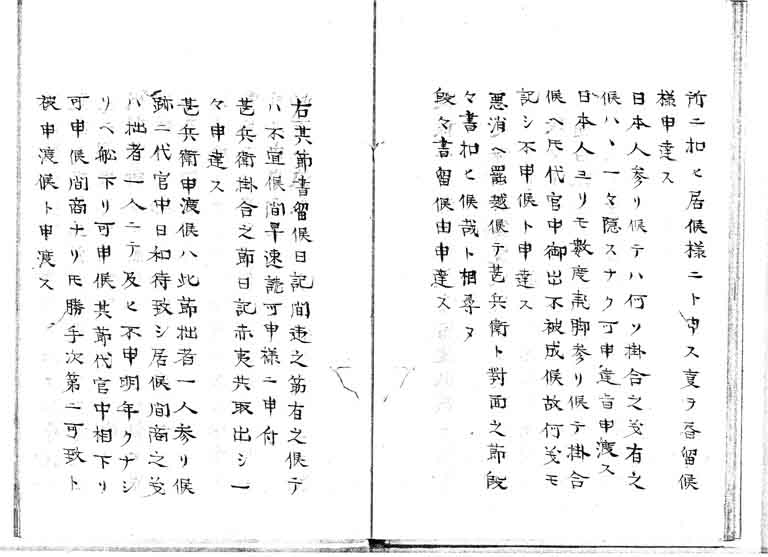 所ニ扣ヒ居候様ニト申ス夏ヲ書留候
様申達ス
日本人参リ候テハ何ソ掛合之筊有之
候ハヽ一々隠スナク可申達旨申渡ス
日本人ヨリモ數度飛脚参リ候テ掛合
候ヘ𪜈代官中御出不被成候故何筊モ
記シ不申候ト申達ス
悪消ヘ罷越候テ甚兵衛ト對面之節既
々書扣ヒ候哉ト相尋ヌ
段々書留候由申達ス
右其節書留候日記間違之筋有之候テ
ハ不宜候間早速読可申様ニ申付
甚兵衛掛合之節日記赤夷共取出シ一
々申達ス
甚兵衛申渡候ハ此節拙者一人参リ候
跡ニ代官中日和待致シ居候間商之筊
ハ拙者一人ニテ及ヒ不申明年クナシ
リヘ舩下リ可申候其節代官中相下リ
可申候間商ナリ𪜈勝手次第ニ可致ト
被申渡候ト申渡ス